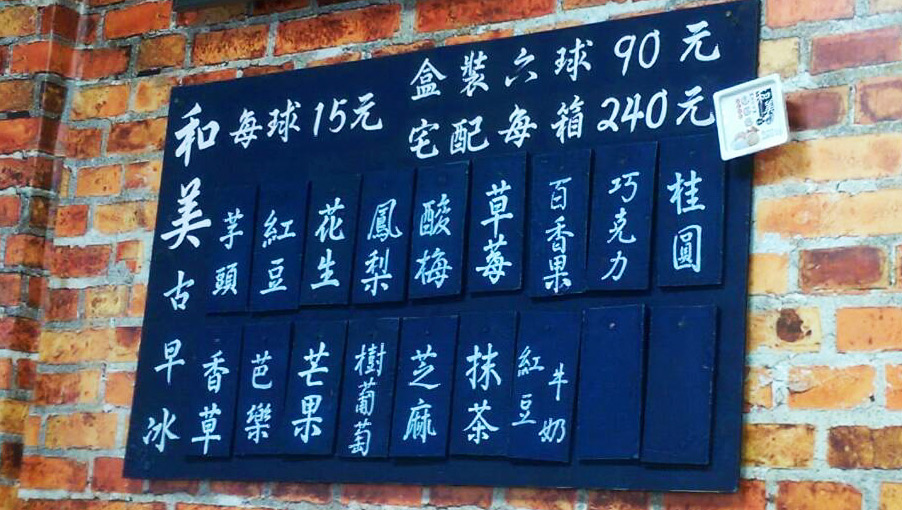 和美古早冰
每球15元
盒裝六球90元
宅配每箱240元
芋頭
紅豆
花生
鳳梨
酸梅
草莓
百香果
巧克力
桂圓
香草
芭樂
芒果
樹葡萄
芝麻
抹茶
紅豆牛奶